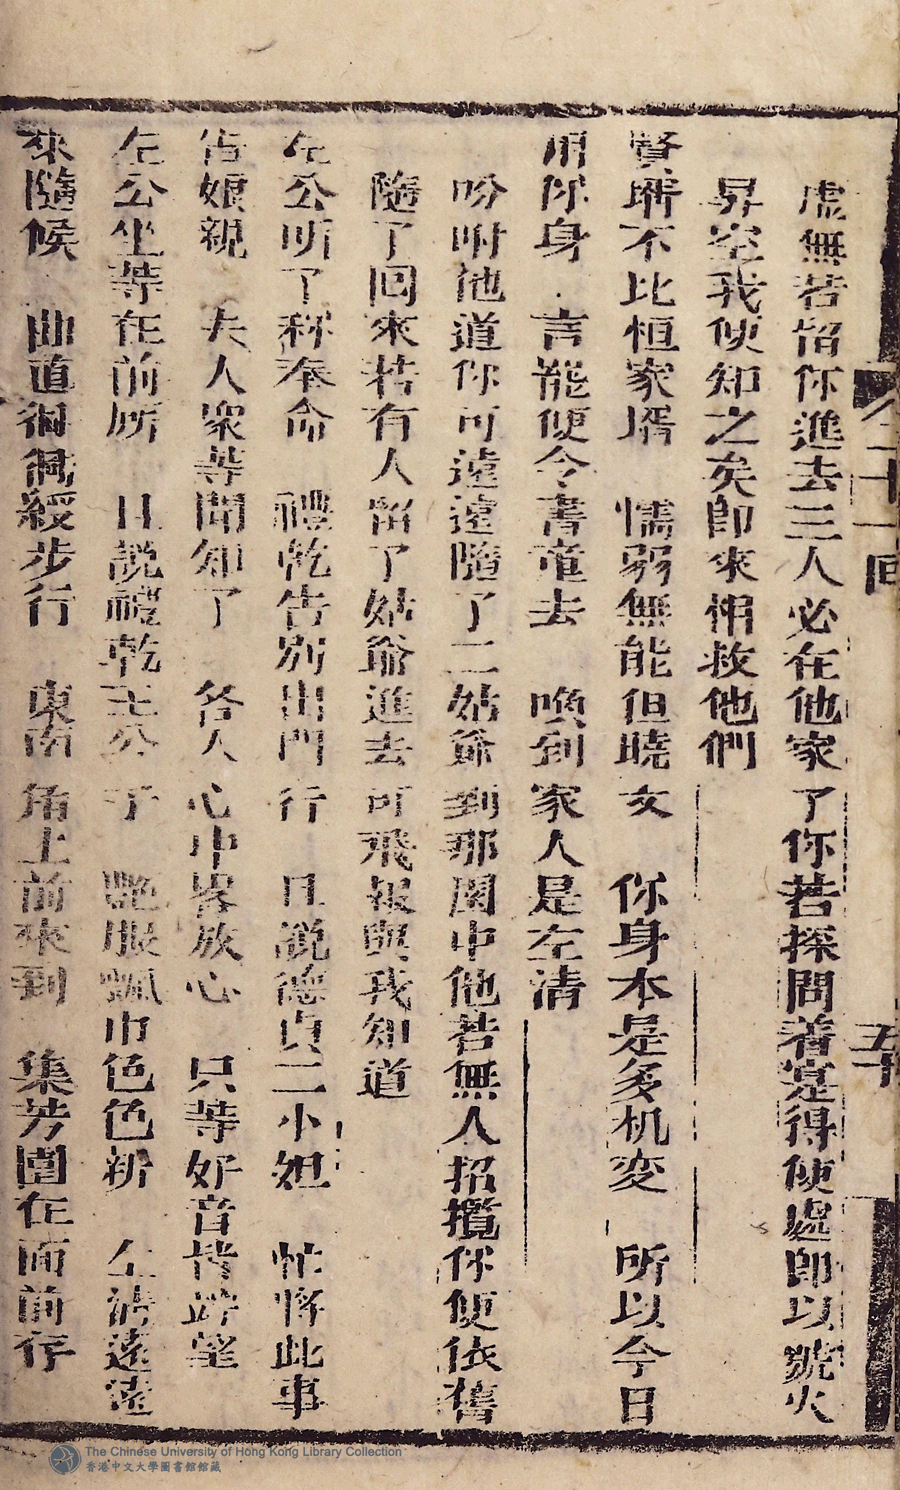 虛無若留你進去三人必在他家了你若探問着寔得便處即以號火
昇空我便知之矣即來相救他們
賢壻不比恒家壻　懦弱無能但曉文　你身本是多机变　所以今日
用你身　言罷便令書童去　喚到家人是左清
吩咐他道你可遠遠隨了二姑爺到那園中他若無人招攬你便依舊
隨了回來若有人留了姑爺進去可飛報與我知道
左公听了称奉命　禮乾告别出門行　且說德貞二小姐　忙将此事
告娘親　夫人衆等聞知了　各人心中畧放心　只等好音皆
左公坐等在前所　且說禮乾王公子　艷服飄巾色色新　左清遠遠
來隨候　曲道徊緩步行　東南角上前來到　集芳園在面前存
全二十一回
五十
The Chinese University of Hong Kong Library Collection
香港中文大學圖書館館藏